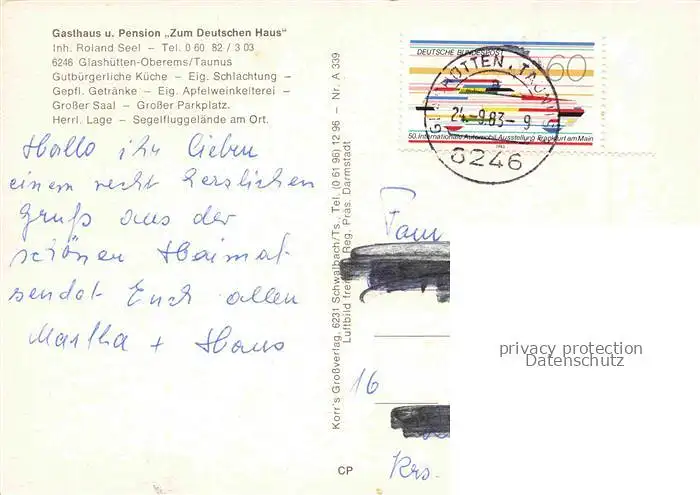 Gasthaus u. Pension „Zum Deutschen Haus"
Inh. Roland Seel – Tel. 0 60 82 / 3 03
6246 Glashütten-Oberems/Taunus
Gutbürgerliche Küche – Eig. Schlachtung –
Gepfl. Getränke – Eig. Apfelweinkelterei –
Großer Saal – Großer Parkplatz.
Herrl. Lage – Segelfluggelände am Ort.
Hallo ihr lieben
einem recht herzlichen
Gruß aus der
schönen Heimat
sendet Euch allen
Martha + Hans
Korr's Großverlag, 6231 Schwalbach/Ts., Tel. (0 61 96) 12 96 – Nr. A 339
Luftbild frei Reg. Präs. Darmstadt
CP
DEUTSCHE BUNDESPOST
60
50. Internationale Automobil-Ausstellung Frankfurt am Main
24.-9.83-9
6246
Fam
16
Krs.
privacy protection
Datenschutz